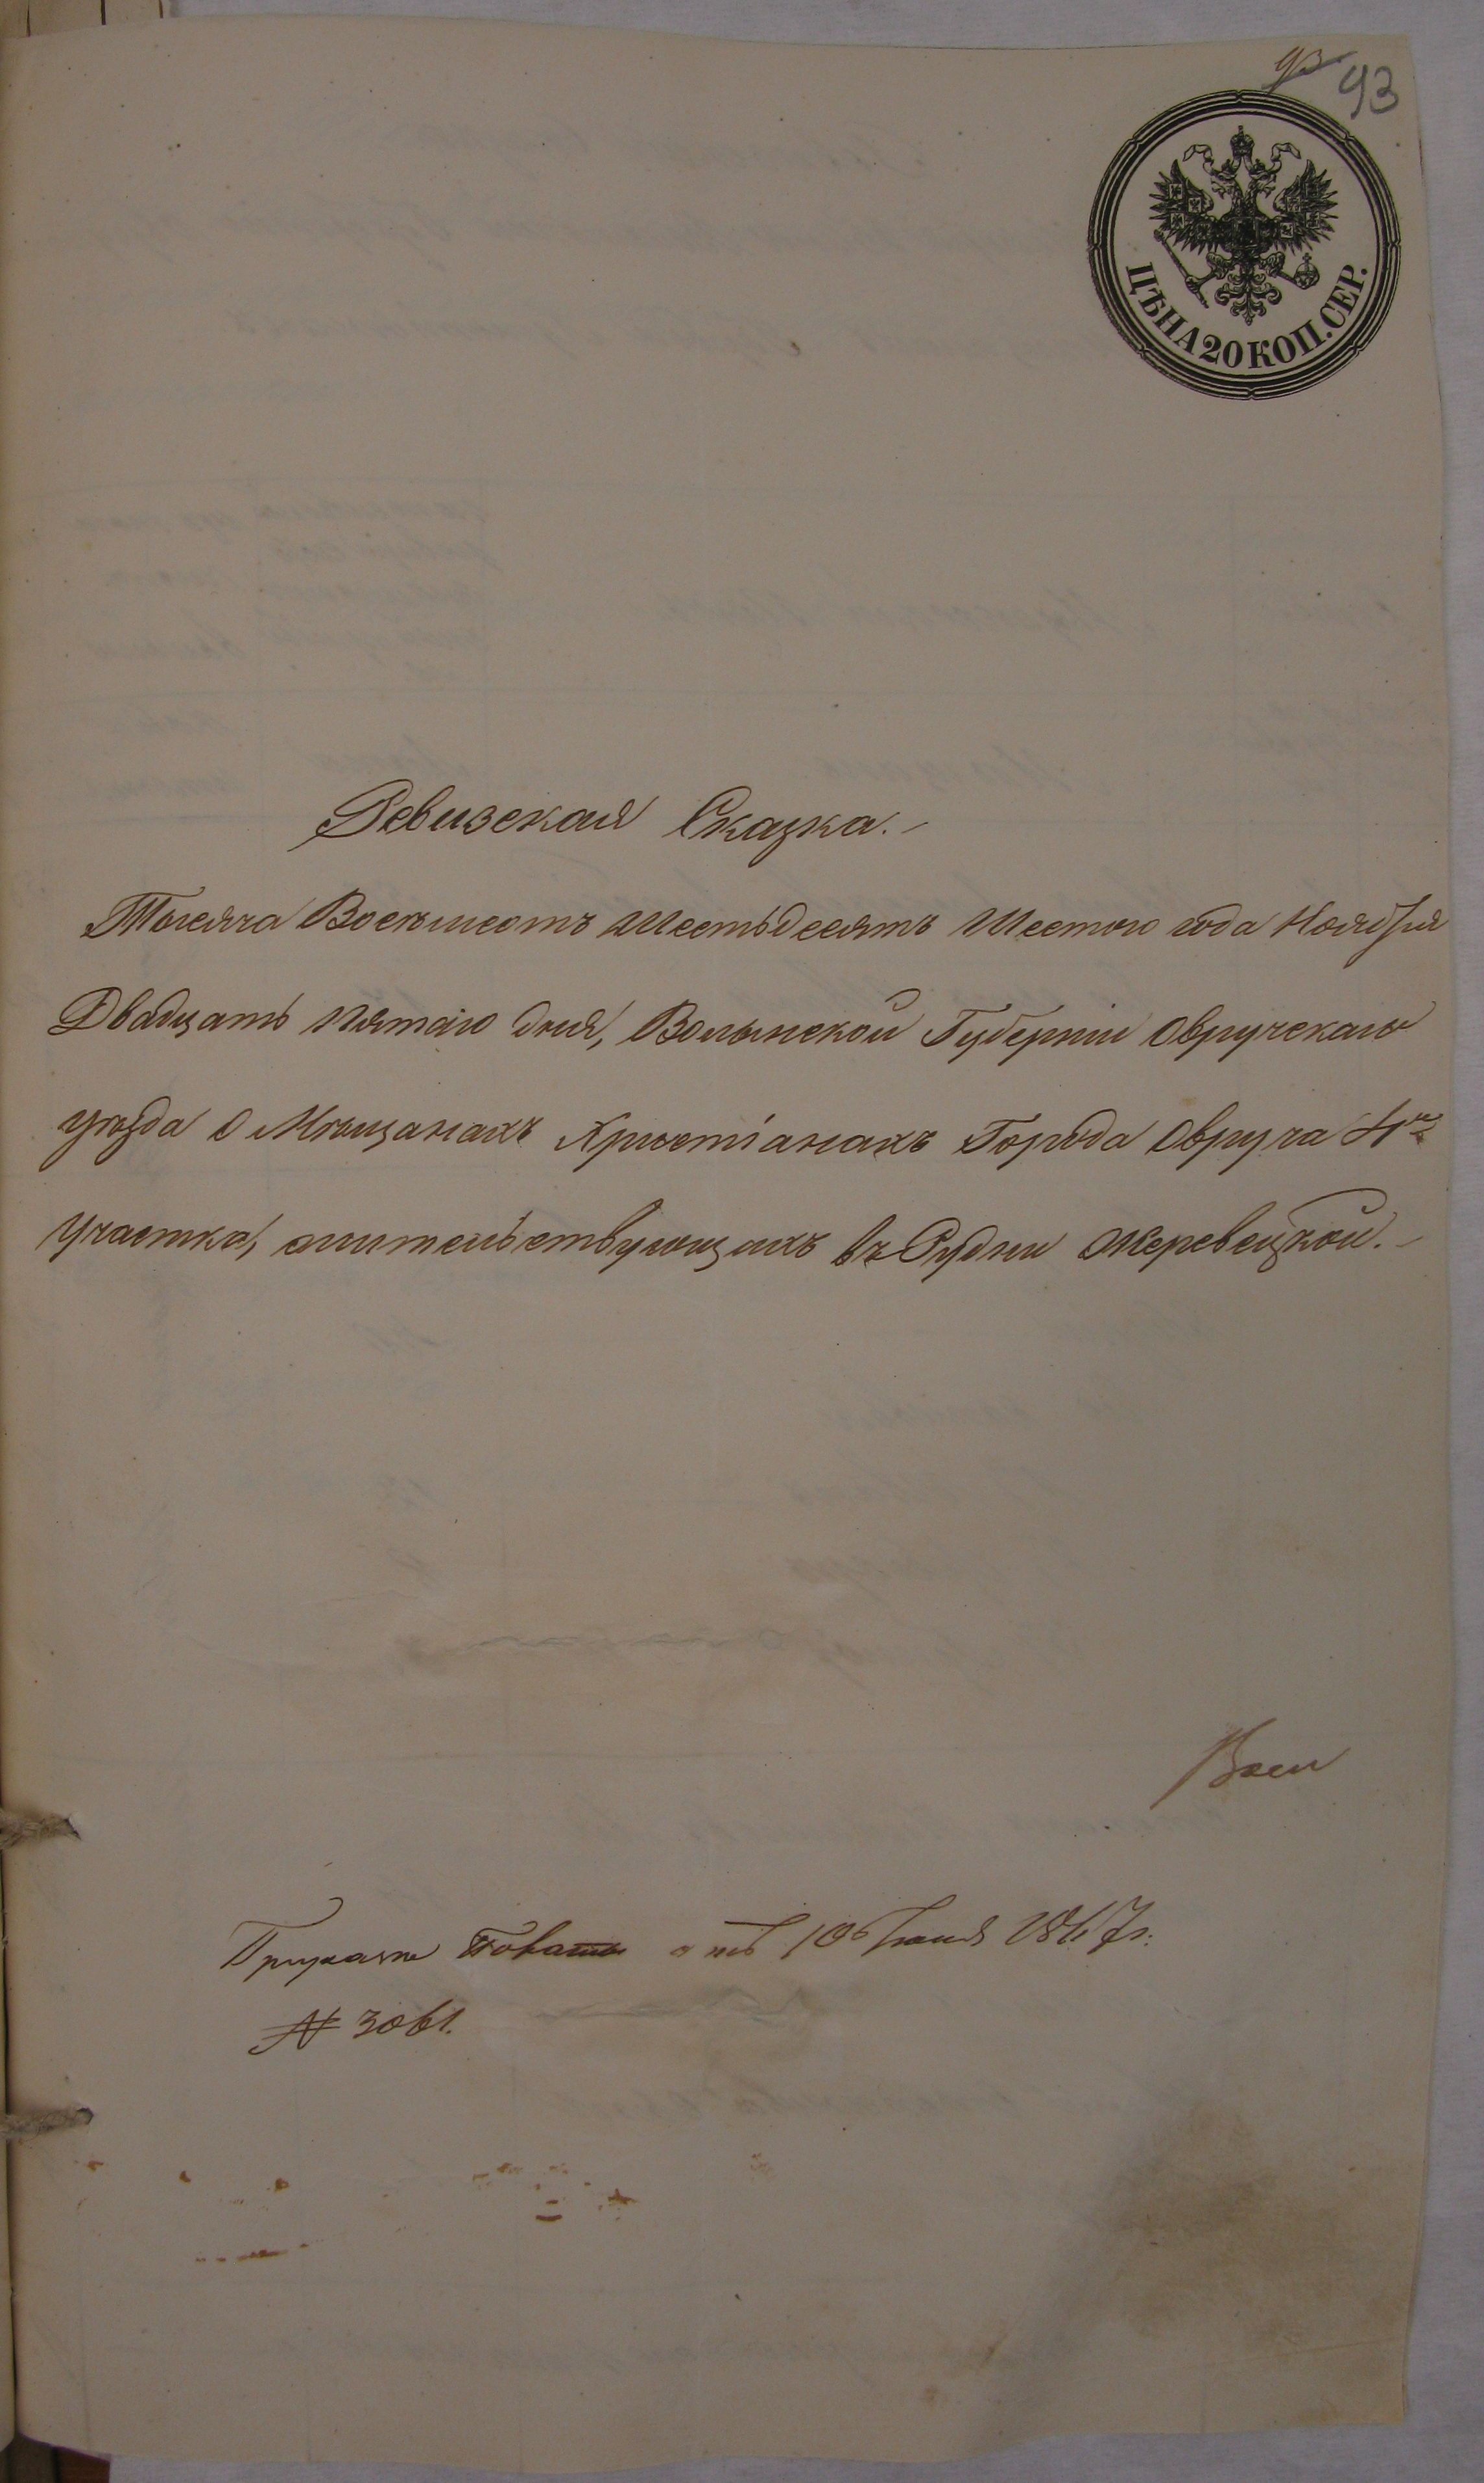 93
93
ЦѢНА 20 КОП. СЕР.
Ревизская Сказка.
Тысяча Восемьсотъ Шестьдесятъ Шестого года Ноября
Двадцать пятаго дня, Волынской Губерніи Овручскаго
уѣзда о Мѣщанахъ Христіанахъ Города Овруча 4го
Участка, жительствующихъ въ Рудни Жеревецкой.
отъ 10 Іюня 1867 г.
№ 3061.